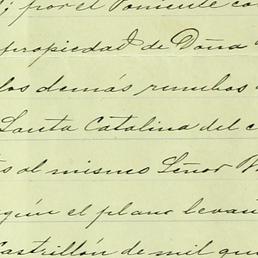 ; por el Poniente co
propiedad de Doña
los demás rumbos
Santa Catalina del c
al mismo Señor
el plano levan
Castrillón de mil qui